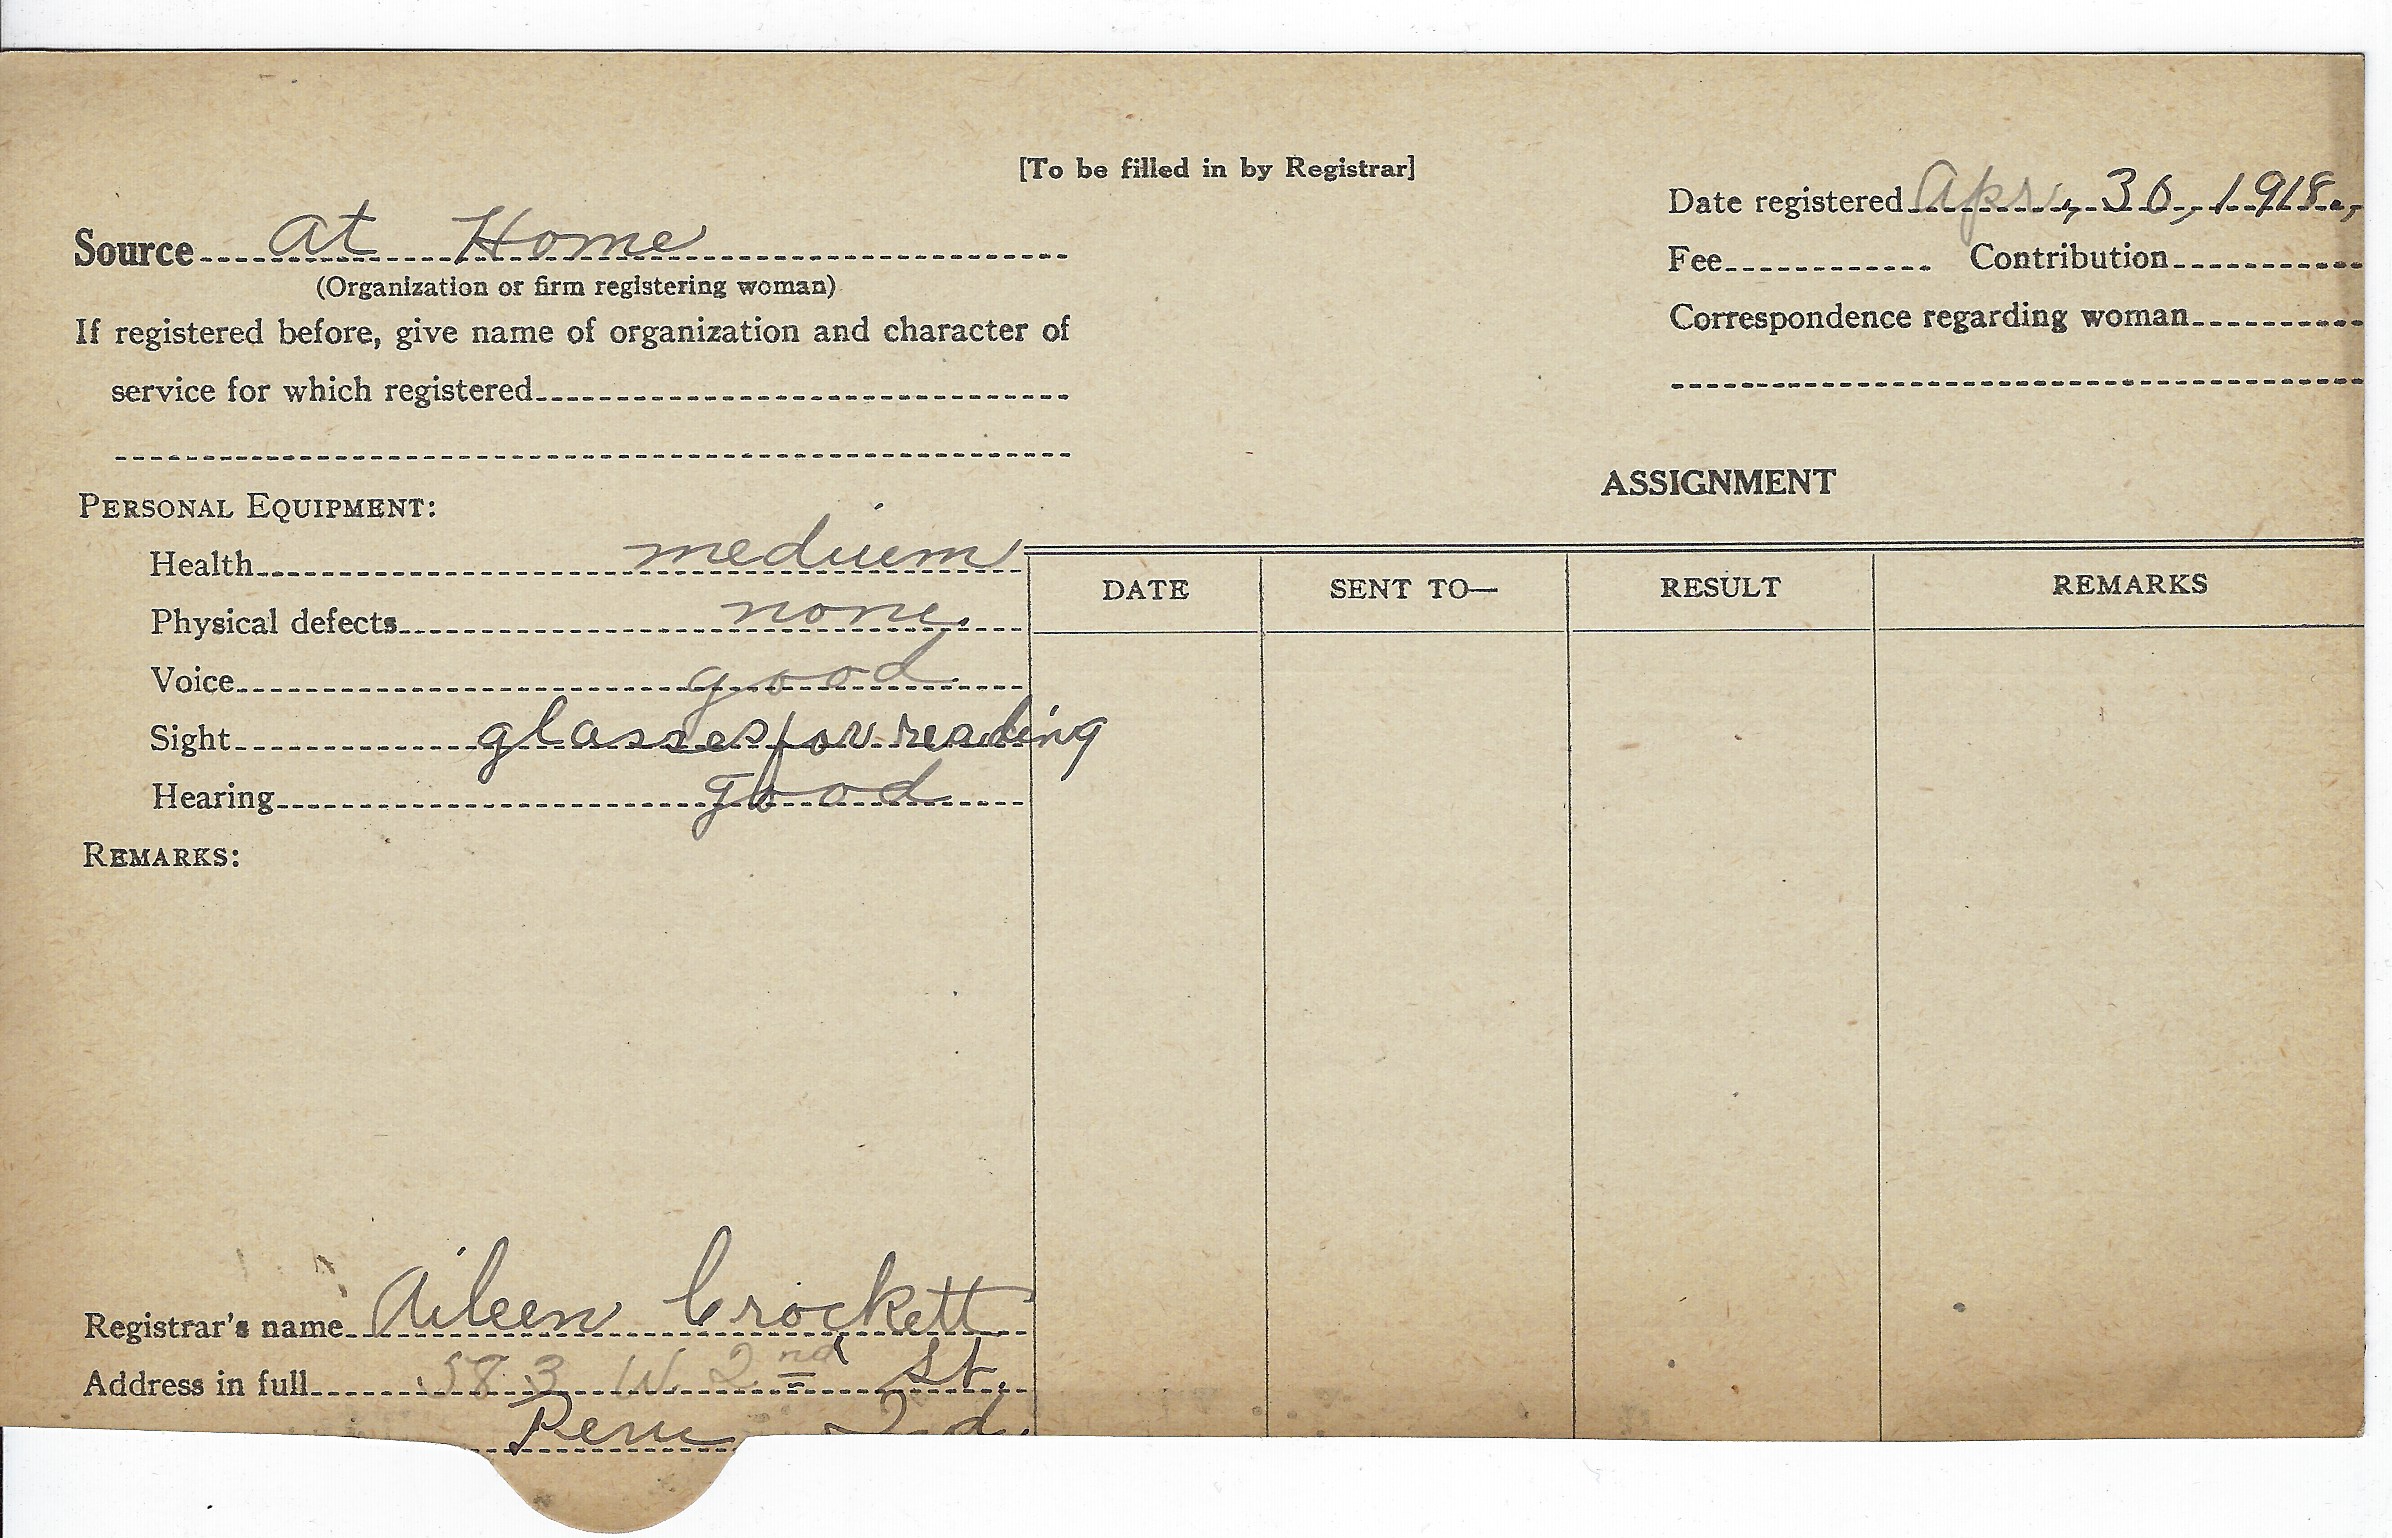 [To be filled in by Registrar]
Date registered Apr., 30, 1918.,
Source at Home
(Organization or firm registering woman)
Fee Contribution
If registered before, give name of organization and character of
Correspondence regarding woman
service for which registered
ASSIGNMENT
PERSONAL EQUIPMENT:
Health medium
DATE SENT TO— RESULT REMARKS
Physical defects none.
Voice good
Sight glasses for reading
Hearing good
REMARKS:
Registrar's name Aileen Crockett
Address in full 583 W. 2nd St.
Peru Ind.